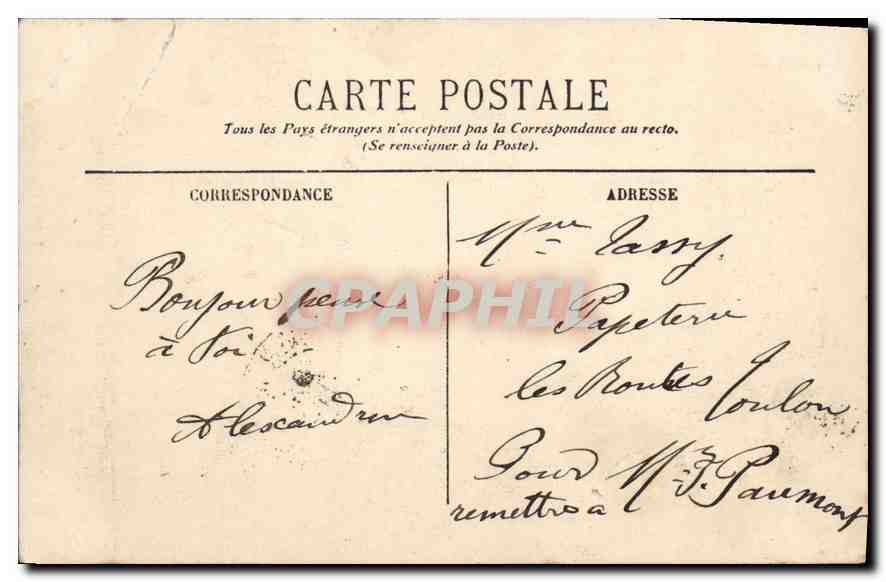 CARTE POSTALE
Tous les Pays étrangers n'acceptent pas la Correspondance au recto.
(Se renseigner à la Poste).
CORRESPONDANCE
Bonjour pense
à toi
Alexandrine
ADRESSE
Mme Tassy
Papeterie
les Routes
Toulon
Pour Mr F. Paumont
remettre a
CPAPHIL